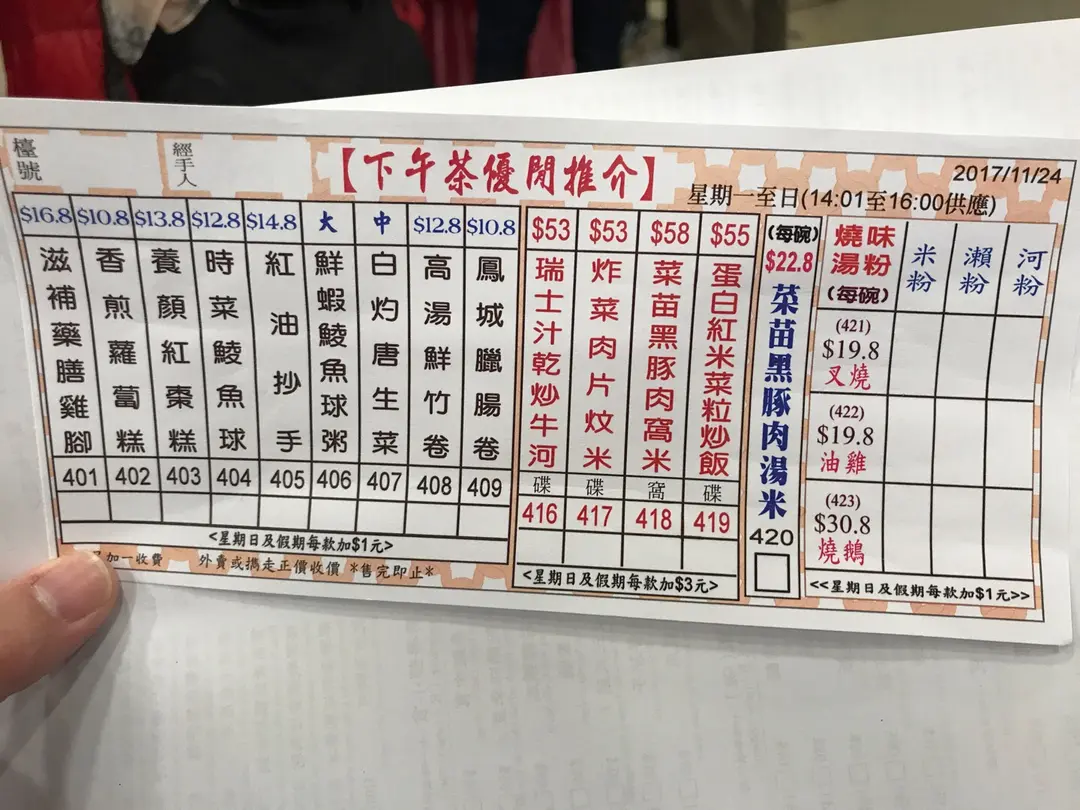 檯號
經手人
【下午茶優閒推介】
2017/11/24
星期一至日(14:01至16:00供應)
$16.8
滋補藥膳雞腳
401
$10.8
香煎蘿蔔糕
402
$13.8
養顏紅棗糕
403
$12.8
時菜鯪魚球
404
$14.8
紅油抄手
405
大
鮮蝦鯪魚球粥
406
中
白灼唐生菜
407
$12.8
高湯鮮竹卷
408
$10.8
鳳城臘腸卷
409
<星期日及假期每款加$1元>
加一收費 外賣或攜走正價收價 *售完即止*
$53
瑞士汁乾炒牛河
碟
416
$53
炸菜肉片炆米
碟
417
$58
菜苗黑豚肉窩米
窩
418
$55
蛋白紅米菜粒炒飯
碟
419
<星期日及假期每款加$3元>
(每碗)
$22.8
菜苗黑豚肉湯米
420
燒味湯粉
(每碗)
米粉
瀨粉
河粉
(421)
$19.8
叉燒
(422)
$19.8
油雞
(423)
$30.8
燒鵝
<<星期日及假期每款加$1元>>